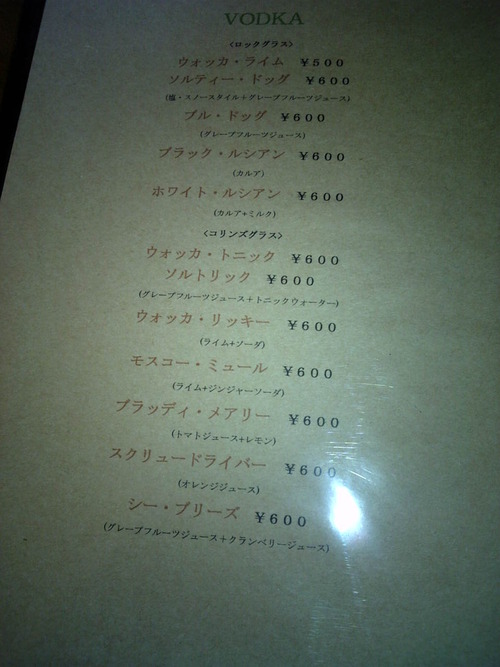 VODKA
〈ロックグラス〉
ウォッカ・ライム ￥５００
ソルティー・ドッグ ￥６００
(塩・スノースタイル＋グレープフルーツジュース)
ブル・ドッグ ￥６００
(グレープフルーツジュース)
ブラック・ルシアン ￥６００
(カルア)
ホワイト・ルシアン ￥６００
(カルア+ミルク)
〈コリンズグラス〉
ウォッカ・トニック ￥６００
ソルトリック ￥６００
(グレープフルーツジュース＋トニックウォーター)
ウォッカ・リッキー ￥６００
(ライム+ソーダ)
モスコー・ミュール ￥６００
(ライム+ジンジャーソーダ)
ブラッディ・メアリー ￥６００
(トマトジュース+レモン)
スクリュードライバー ￥６００
(オレンジジュース)
シー・ブリーズ ￥６００
(グレープフルーツジュース＋クランベリージュース)